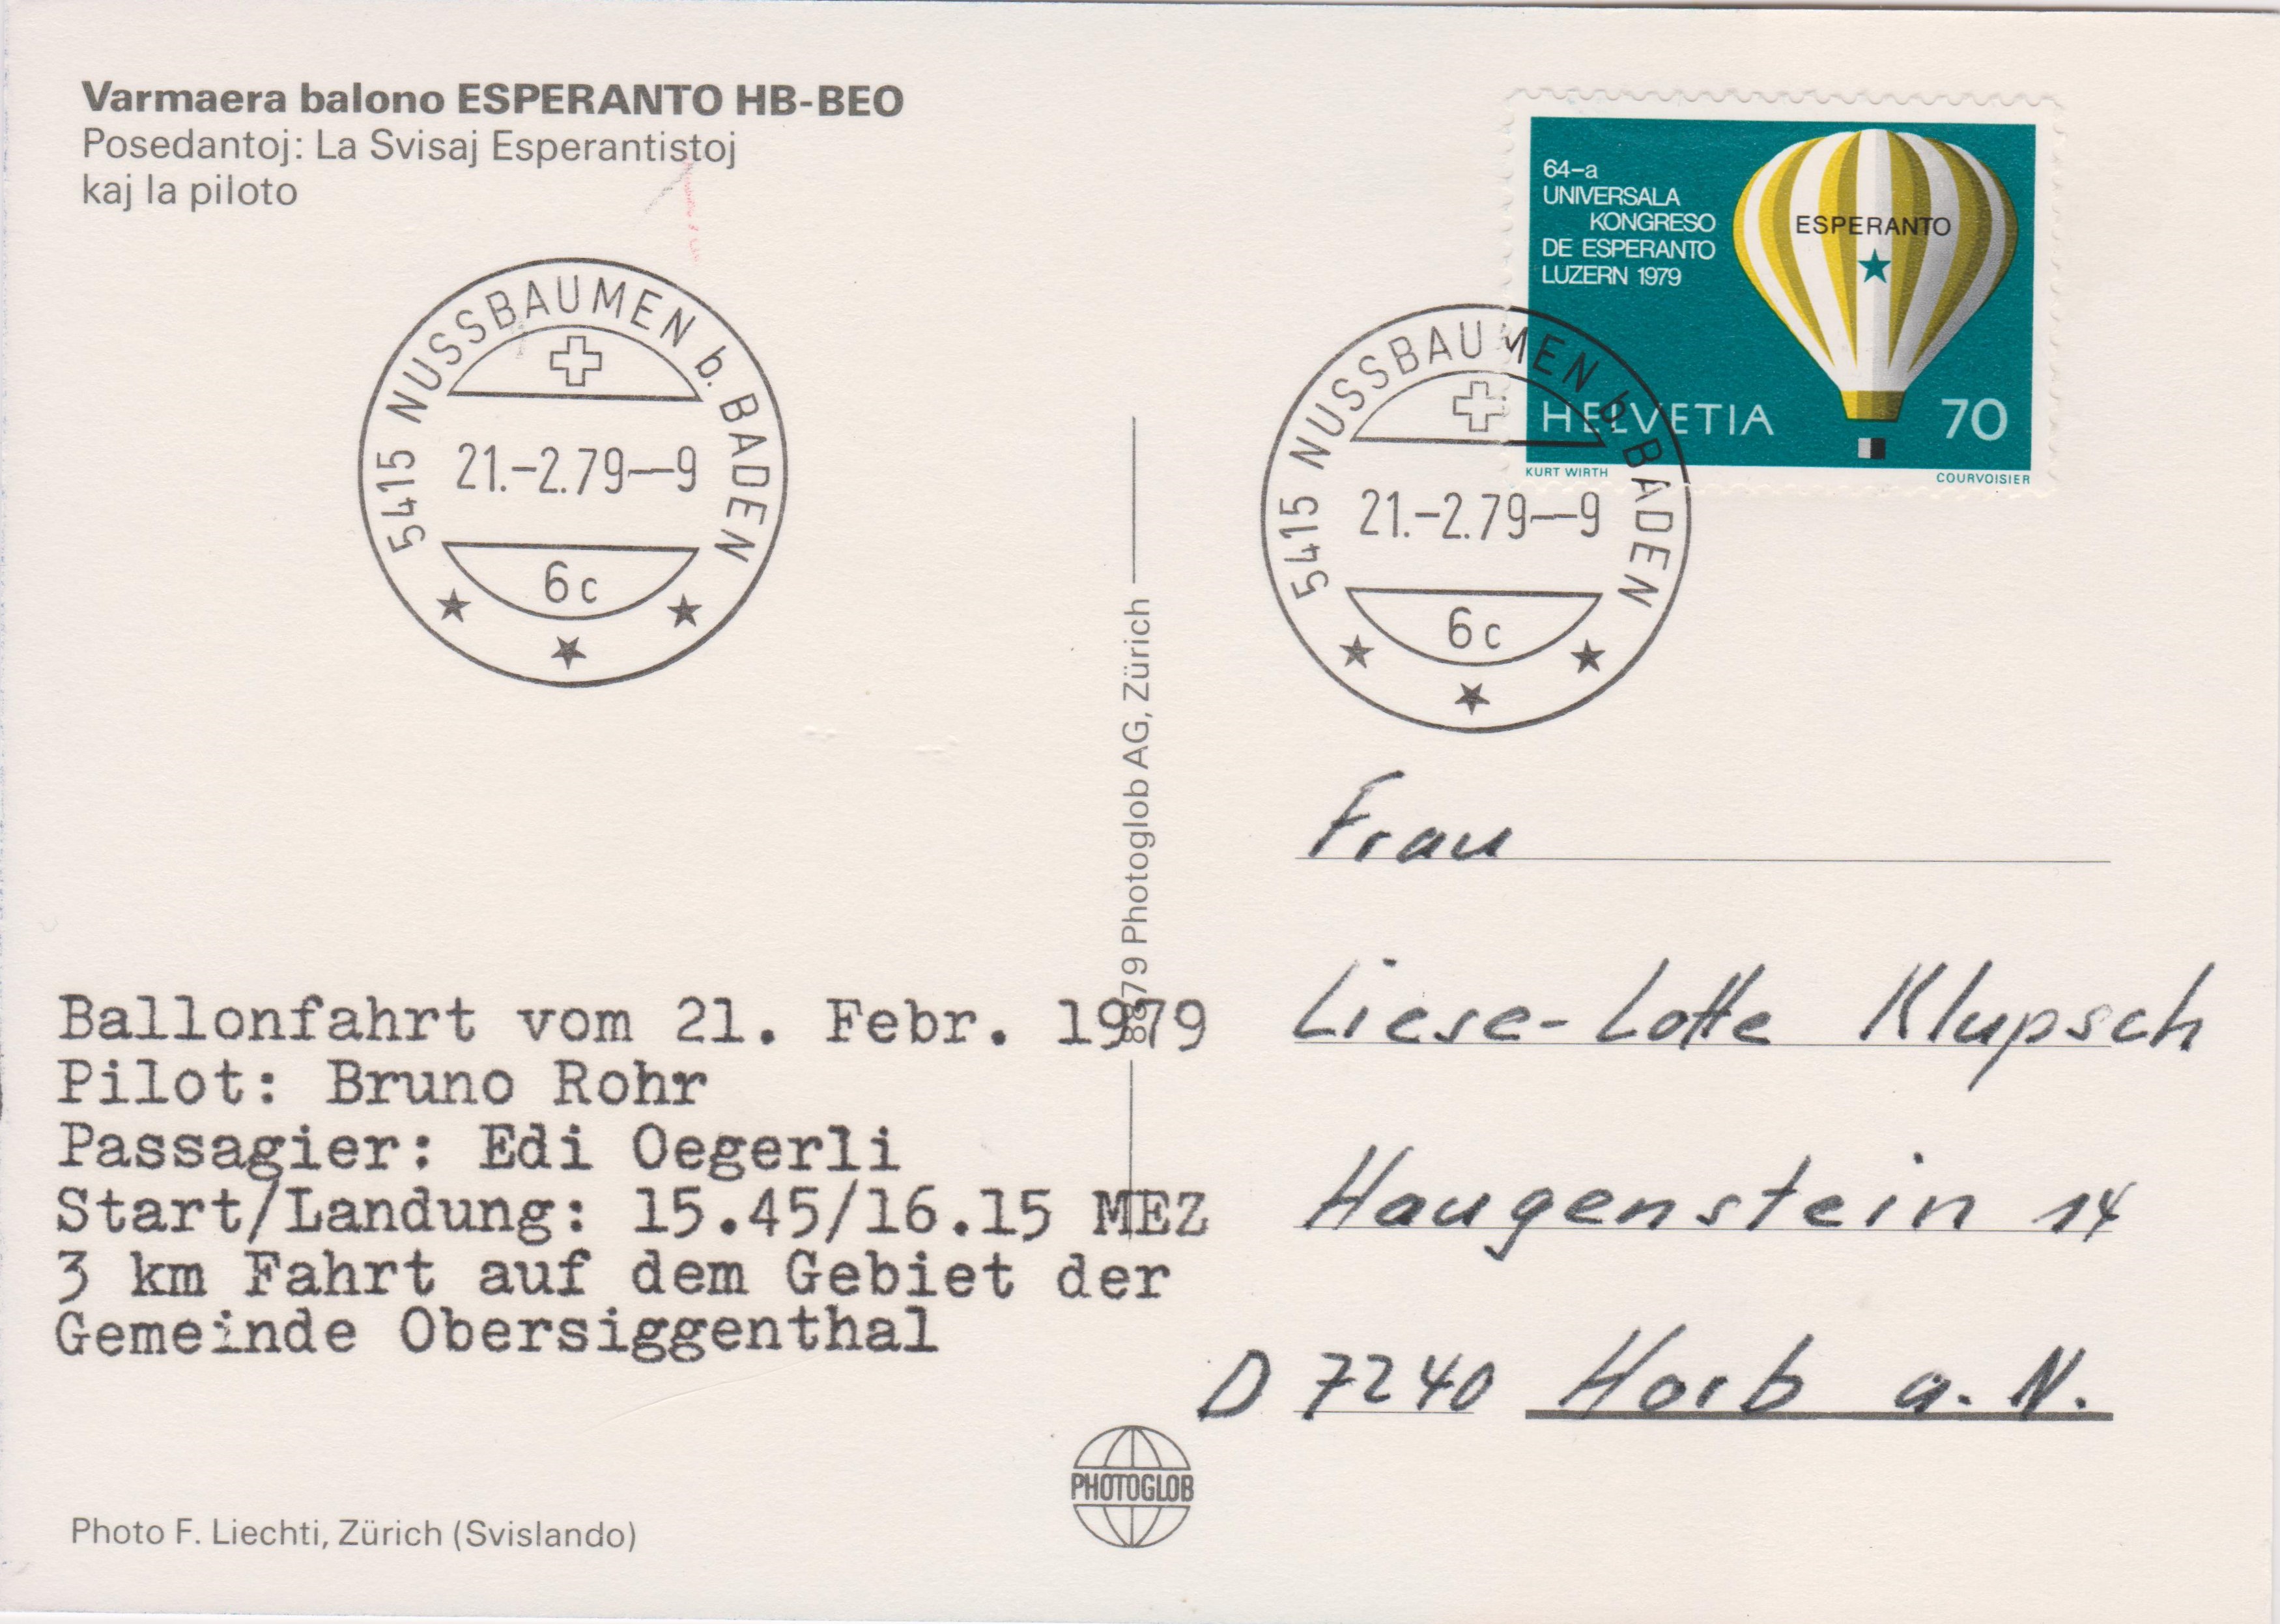 Varmaera balono ESPERANTO HB-BEO
Posedantoj: La Svisaj Esperantistoj
kaj la piloto
64-a
UNIVERSALA
KONGRESO
DE ESPERANTO
LUZERN 1979
ESPERANTO
HELVETIA 70
KURT WIRTH COURVOISIER
5415 NUSSBAUMEN b. BADEN
21.-2.79--9
6c
5415 NUSSBAUMEN b. BADEN
21.-2.79--9
6c
8879 Photoglob AG, Zürich
Ballonfahrt vom 21. Febr. 1979
Pilot: Bruno Rohr
Passagier: Edi Oegerli
Start/Landung: 15.45/16.15 MEZ
3 km Fahrt auf dem Gebiet der
Gemeinde Obersiggenthal
Frau
Liese-Lotte Klupsch
Haugenstein 14
D 7240 Horb a. N.
PHOTOGLOB
Photo F. Liechti, Zürich (Svislando)